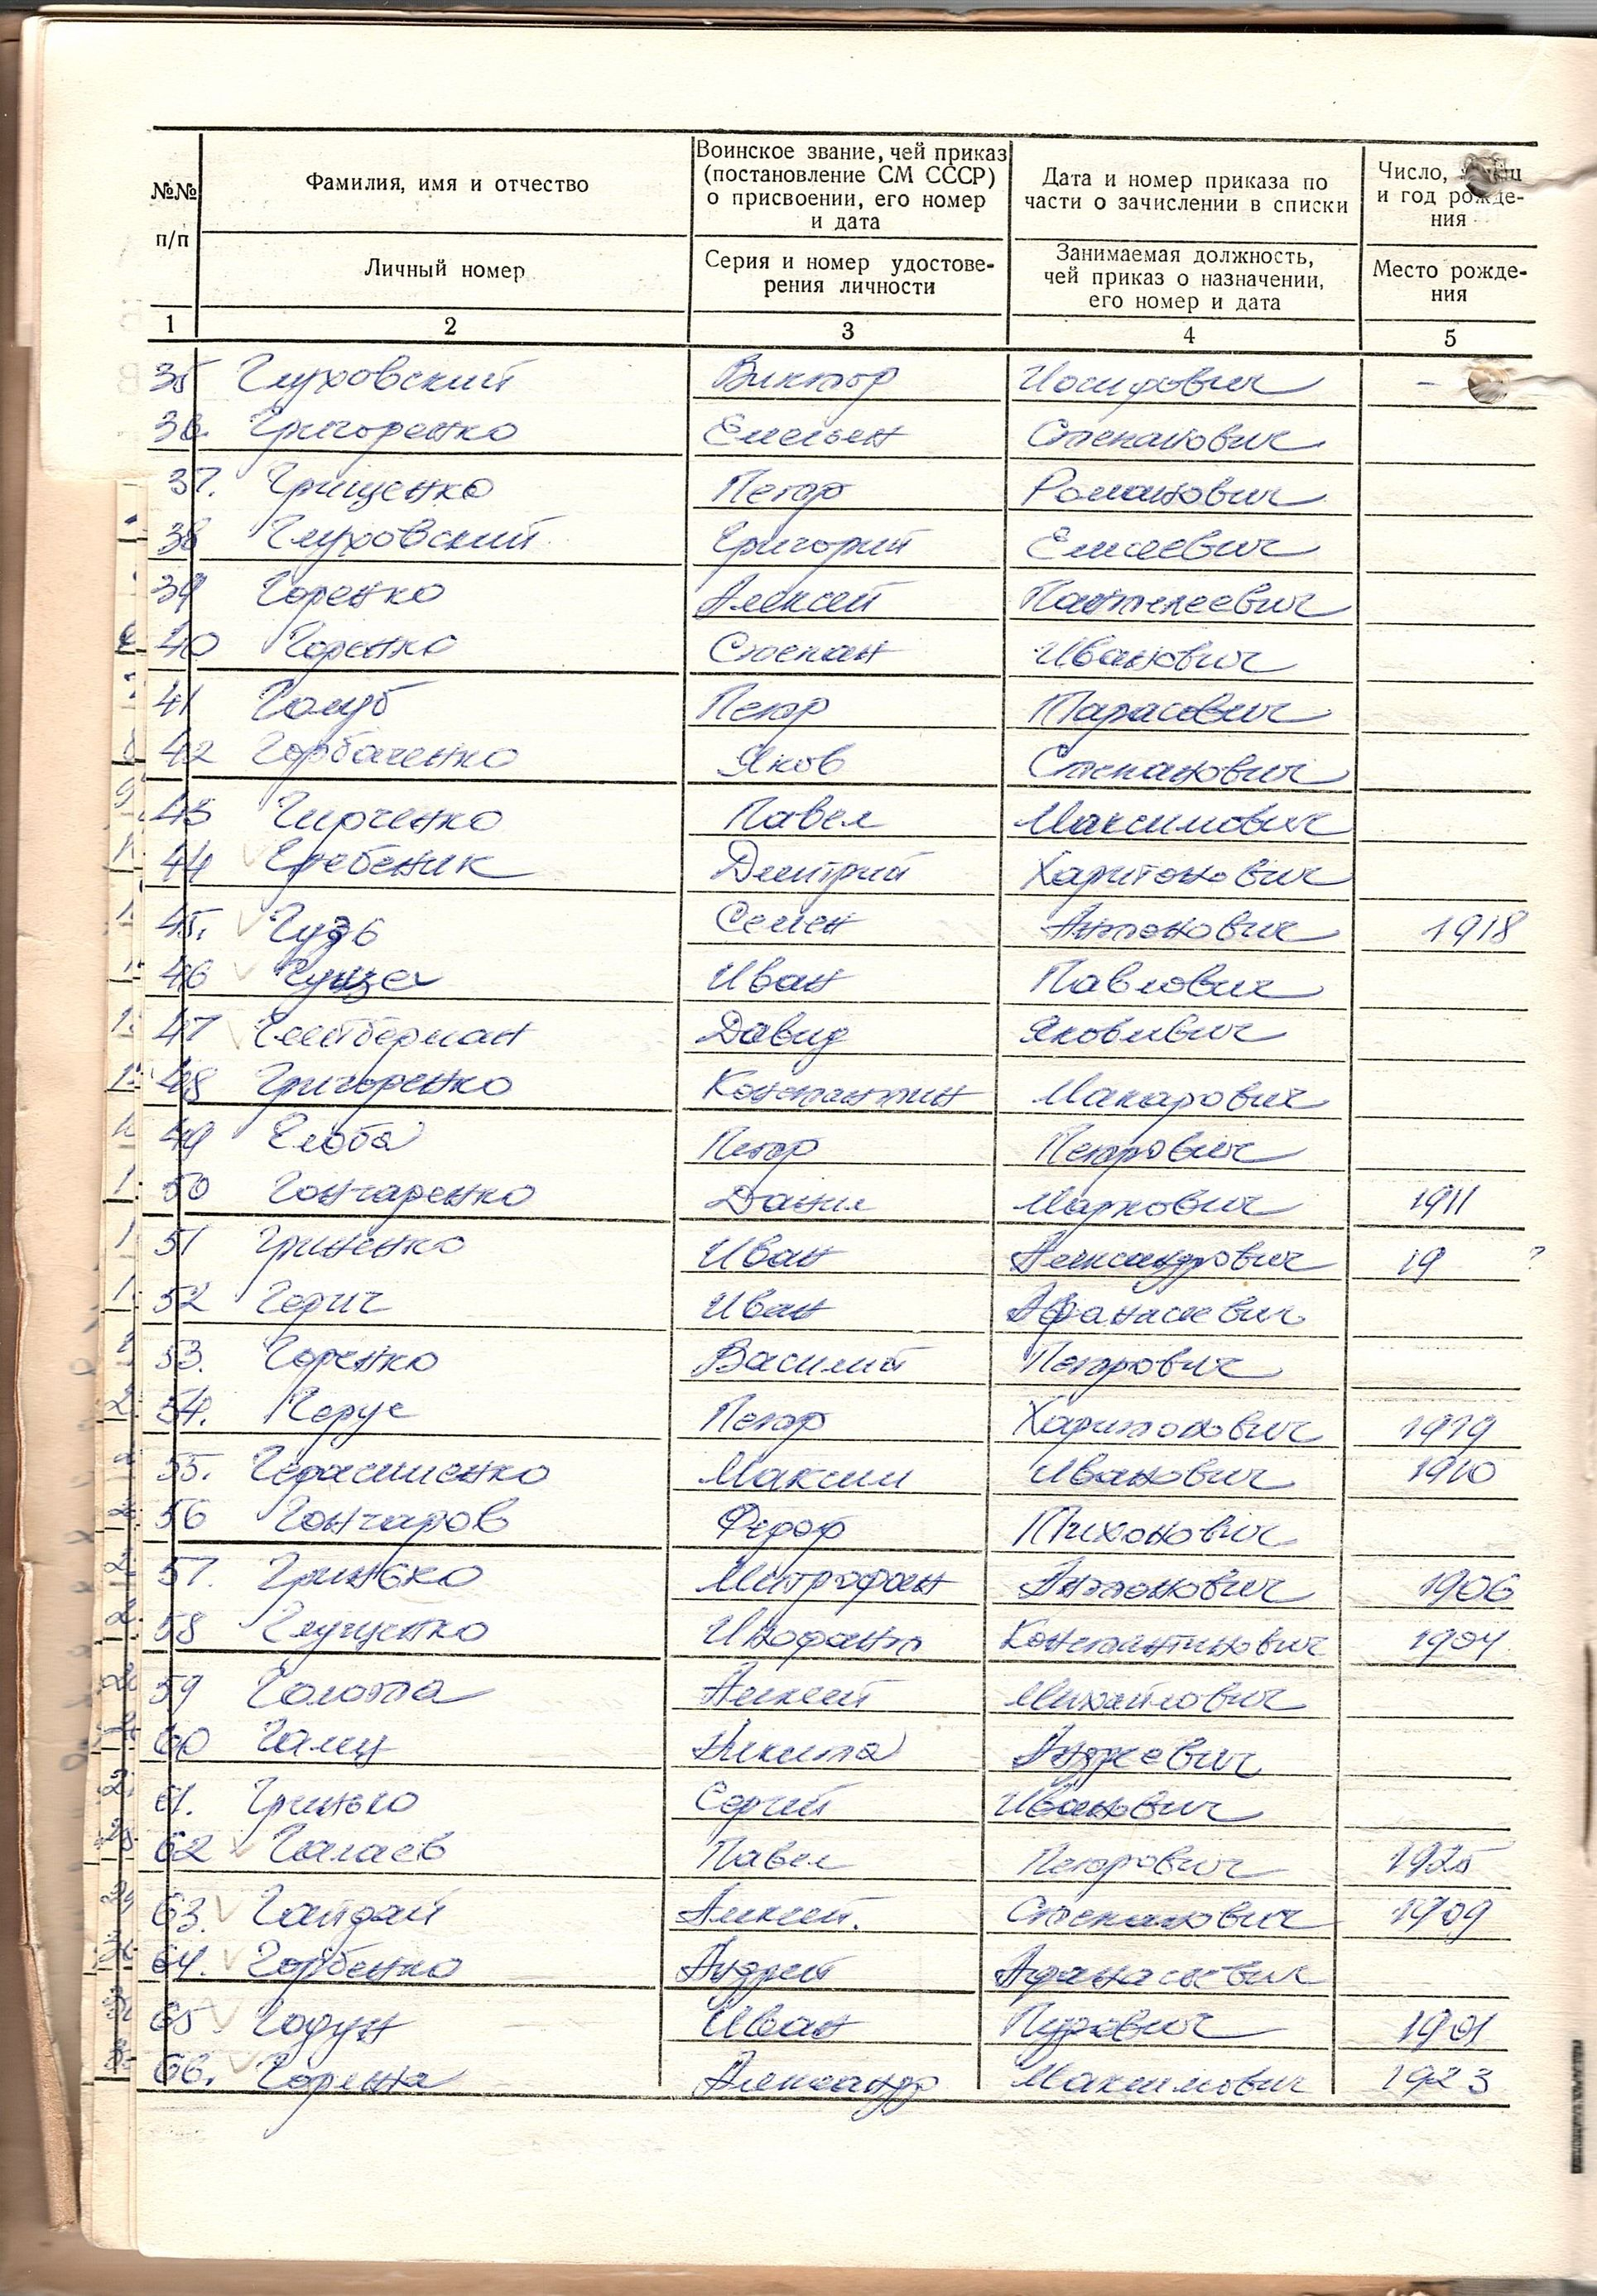 №№ п/п
Фамилия, имя и отчество
Личный номер
Воинское звание, чей приказ
(постановление СМ СССР)
о присвоении, его номер
и дата
Серия и номер удостове-
рения личности
Дата и номер приказа по
части о зачислении в списки
Занимаемая должность,
чей приказ о назначении,
его номер и дата
Число,
и год рожде-
ния
Место рожде-
ния
1 2 3 4 5
35 Глуховский Виктор Иосифович -
36. Григоренко Емельян Степанович
37. Грищенко Петр Романович
38 Глуховский Григорий Елисеевич
39 Горенко Алексей Пантелеевич
40 Горенко Степан Иванович
41 Голуб Петр Тарасович
42 Горбаченко Яков Степанович
43 Гирченко Павел Максимович
44 Гребеник Дмитрий Харитонович
45. Гудзь Семен Антонович 1918
46 Иван Павлович
47 Давид Яковлевич
48 Григоренко Константин Макарович
49 Глоба Петр Петрович
50 Гончаренко Данил Маркович 1911
51 Гриненко Иван Александрович 19 ?
52 Герич Иван Афанасиевич
53. Горенко Василий Петрович
54. Герус Петр Харитонович 1919
55. Герасименко Максим Иванович 1910
56 Гончаров Федор Тихонович
57. Гринько Митрофан Антонович 1906
58 Глущенко Константинович 1904
59 Голота Алексей Михайлович
60 Никита Андреевич
61. Гринько Сергий Иванович
62 Галаев Павел Петрович 1925
63. Гайдай Алексей. Степанович 1909
64. Горбенко Андрей Афанасиевич
65 Годун Иван 1901
66. Александр Максимович 1923